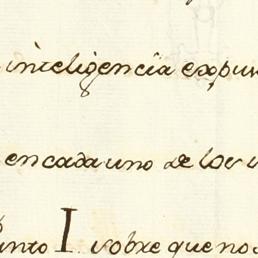 inteligencia expun
en cada uno de los v
unto I. sobre que no s